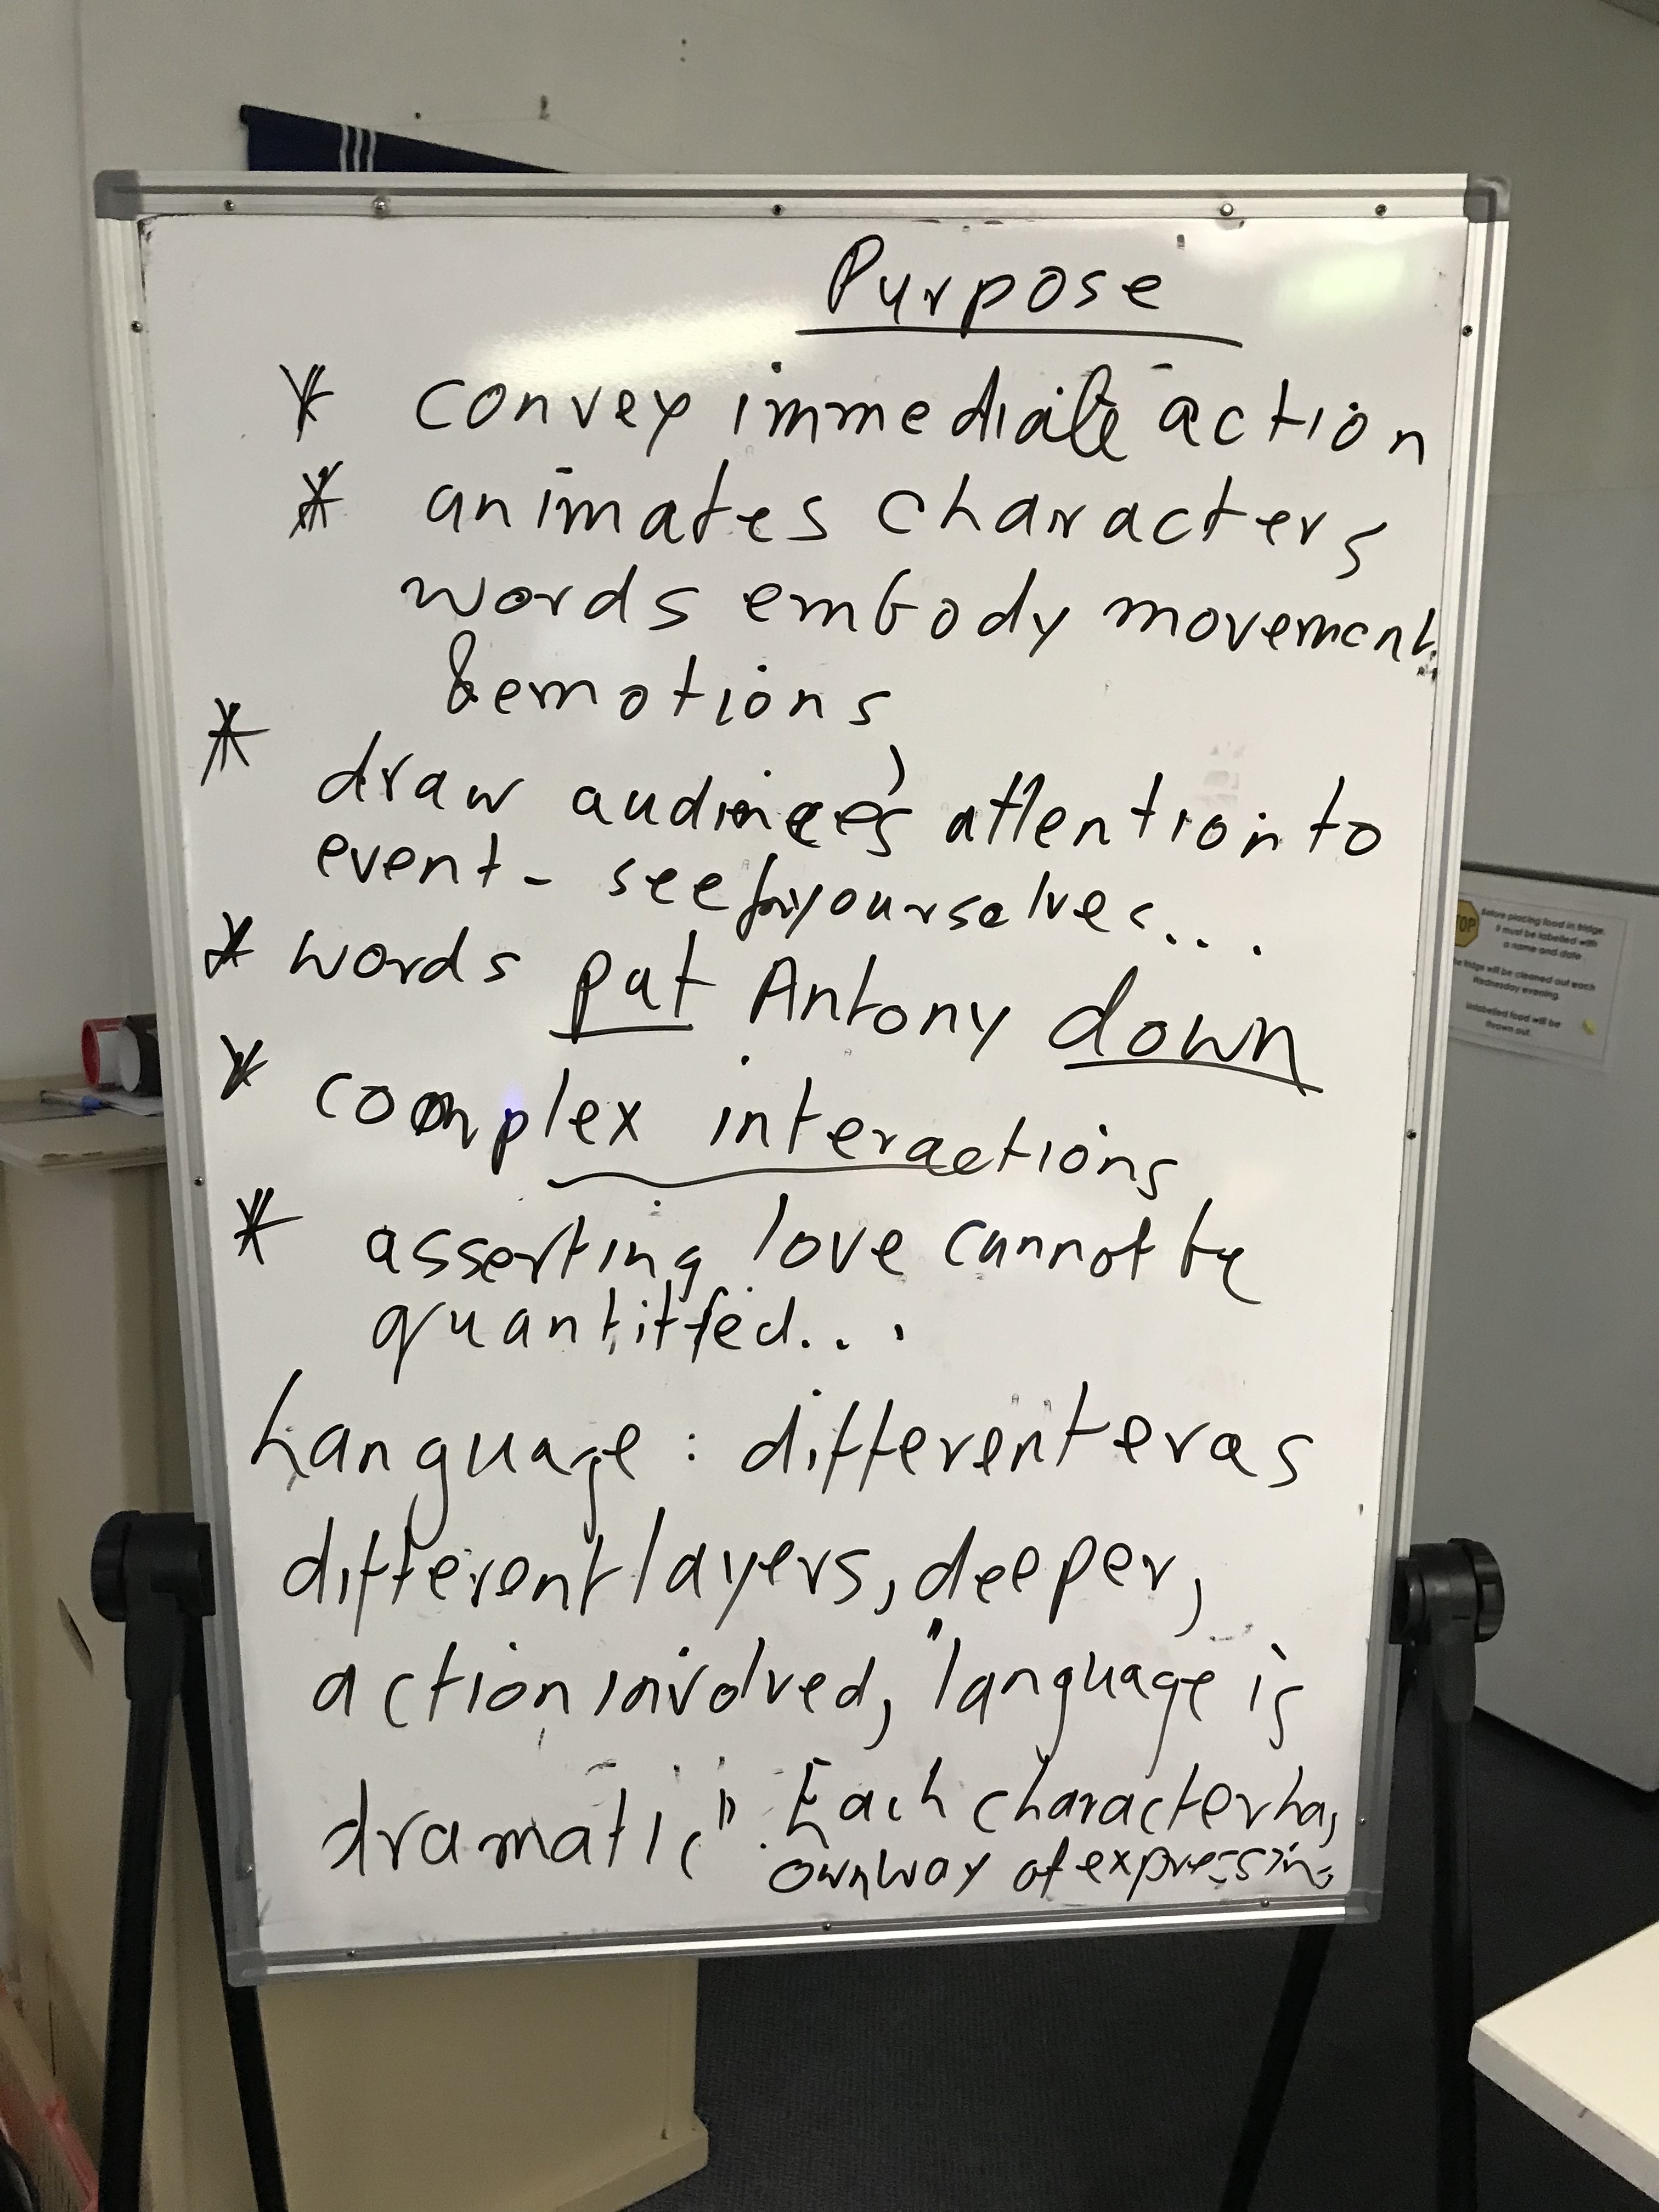 Purpose
* convey immediate action
* animates characters
words embody movement
& emotions
* draw audience's attention to
event - see for yourselves...
* words put Antony down
* complex interactions
* asserting love cannot be
quantitfed...
Language : different eras
different layers, deeper,
action involved, "language is
dramatic". Each character has
own way of expressing
STOP
Before placing food in fridge,
it must be labelled with
a name and date
The fridge will be cleaned out each
Wednesday evening.
Unlabelled food will be
thrown out.